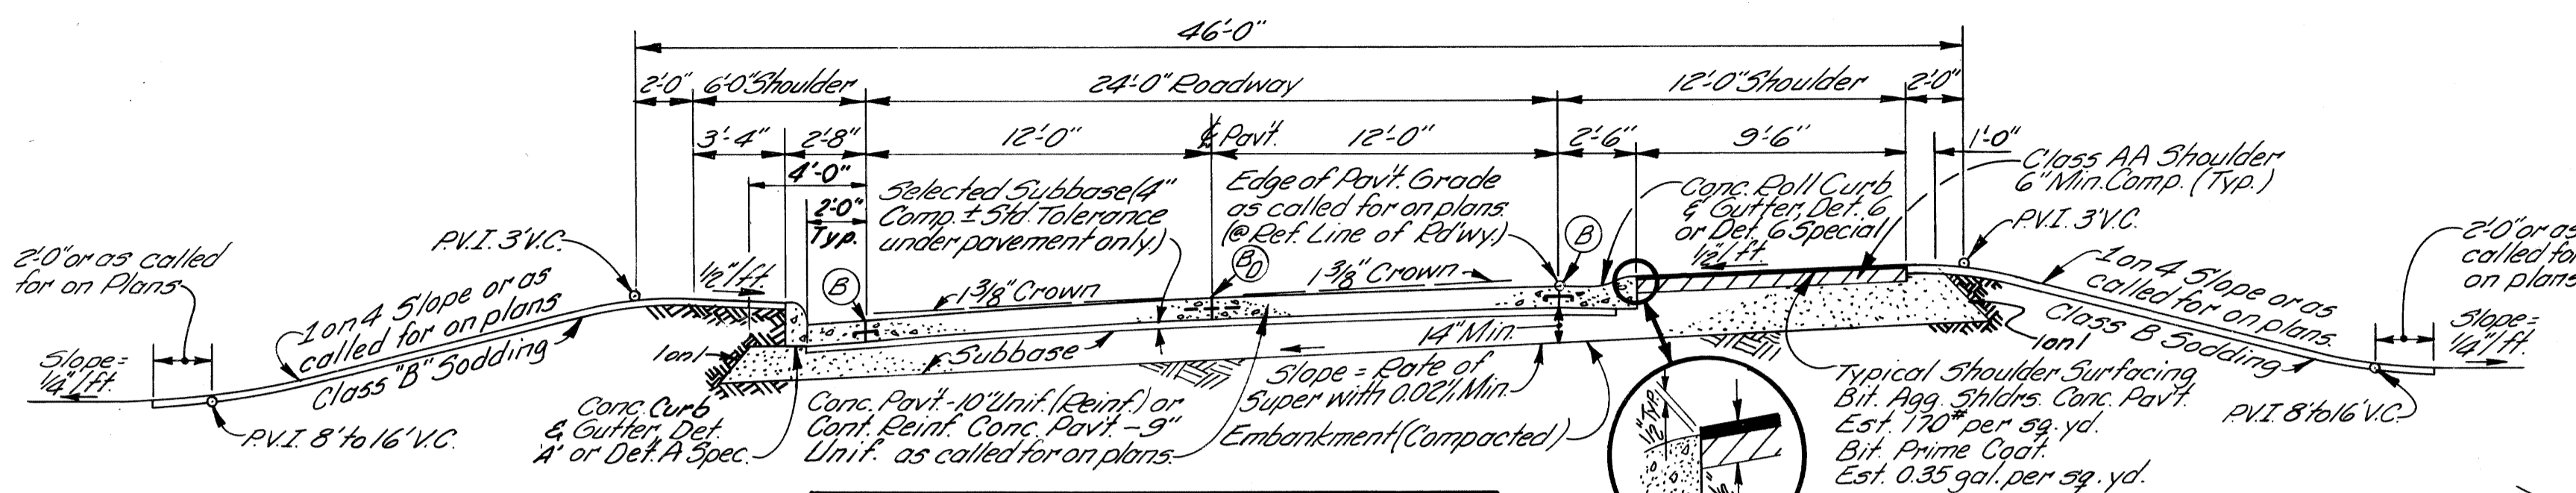 46'-0"
2'-0"
6'-0" Shoulder
24'-0" Roadway
12'-0" Shoulder
2'-0"
3'-4"
2'-8"
12'-0"
℄ Pav't.
12'-0"
2'-6"
9'-6"
1'-0"
4'-0"
2'-0"
Typ.
Selected Subbase (4"
Comp. ± Std. Tolerance
under pavement only.)
Edge of Pav't. Grade
as called for on plans.
(@ Ref. Line of Rd'wy.)
Conc. Roll Curb
& Gutter, Det. 6
or Det. 6 Special
Class AA Shoulder
6" Min. Comp. (Typ.)
P.V.I. 3' V.C.
P.V.I. 3' V.C.
2'-0" or as called
for on Plans
2'-0" or as
called for
on plans
1/2"/ft.
1/2"/ft.
B
B0
B
1 3/8" Crown
1 3/8" Crown
1 on 4 Slope or as
called for on plans
Class "B" Sodding
1 on 4 Slope or as
called for on plans.
Class B Sodding
Slope=
1/4"/ft.
Slope=
1/4"/ft.
1 on 1
1 on 1
Subbase
14" Min.
Slope = Rate of
Super with 0.02'/, Min.
Embankment (Compacted)
P.V.I. 8' to 16' V.C.
P.V.I. 8' to 16' V.C.
Conc. Curb
& Gutter, Det.
'A' or Det. A Spec.
Conc. Pav't.-10" Unif. (Reinf.) or
Cont. Reinf. Conc. Pav't. - 9"
Unif. as called for on plans.
1/2" Typ.
Typical Shoulder Surfacing
Bit. Agg. Shldrs. Conc. Pav't.
Est. 170# per sq. yd.
Bit. Prime Coat.
Est. 0.35 gal. per sq. yd.